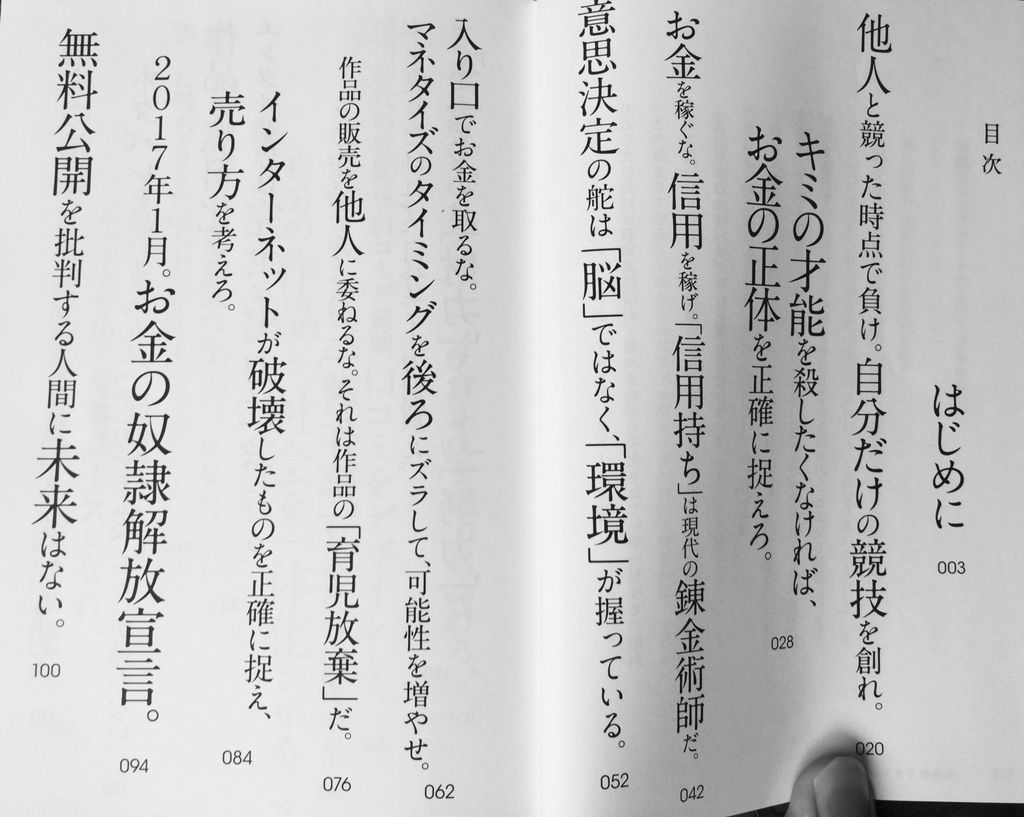 目次
はじめに
003
他人と競った時点で負け。自分だけの競技を創れ。
020
キミの才能を殺したくなければ、
お金の正体を正確に捉えろ。
028
お金を稼ぐな。信用を稼げ。「信用持ち」は現代の錬金術師だ。
042
意思決定の舵は「脳」ではなく、「環境」が握っている。
052
入り口でお金を取るな。
マネタイズのタイミングを後ろにズラして、可能性を増やせ。
062
作品の販売を他人に委ねるな。それは作品の「育児放棄」だ。
076
インターネットが破壊したものを正確に捉え、
売り方を考えろ。
084
2017年1月。お金の奴隷解放宣言。
094
無料公開を批判する人間に未来はない。
100